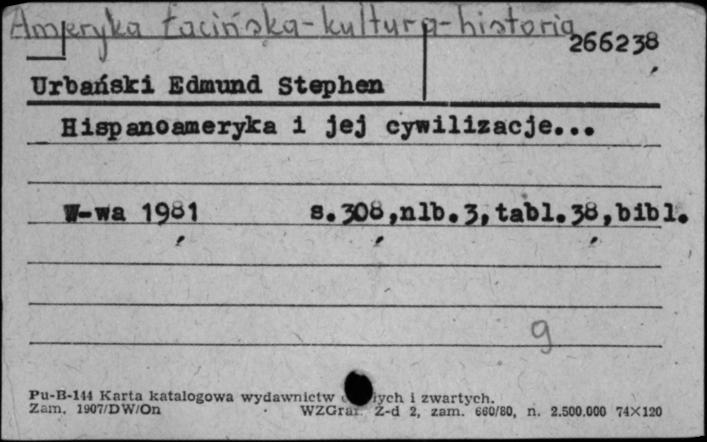 Ameryka Łacińska-kultura-historia
266238
Urbański Edmund Stephen
Hispanoameryka i jej cywilizacje...
W-wa 1981 s.308,nlb.3,tabl.38,bibl.
9
Pu-B-144 Karta katalogowa wydawnictw i zwartych.
Zam. 1907/DW/On WZGraf. Z-d 2, zam. 660/80, n. 2.500.000 74×120